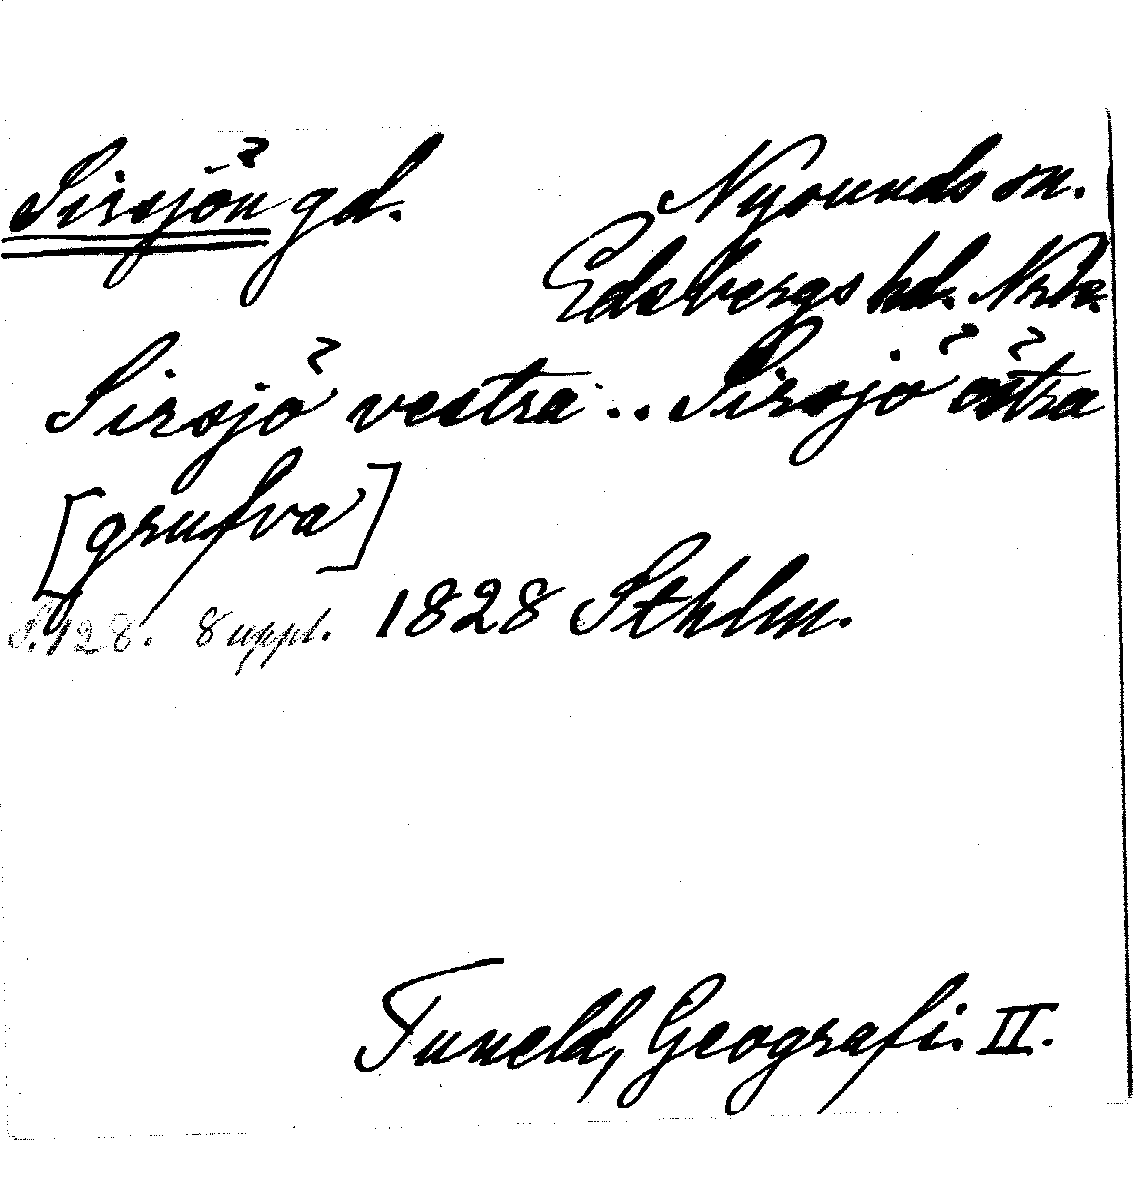 Sirsjön gd. Nysunds sn.
Edsbergs hd. Nrke.
Sirsjö vestra .. Sirsjö östra
[grufva]
S. 128. 8 uppl. 1828 Sthlm.
Tuneld, Geografi. II.